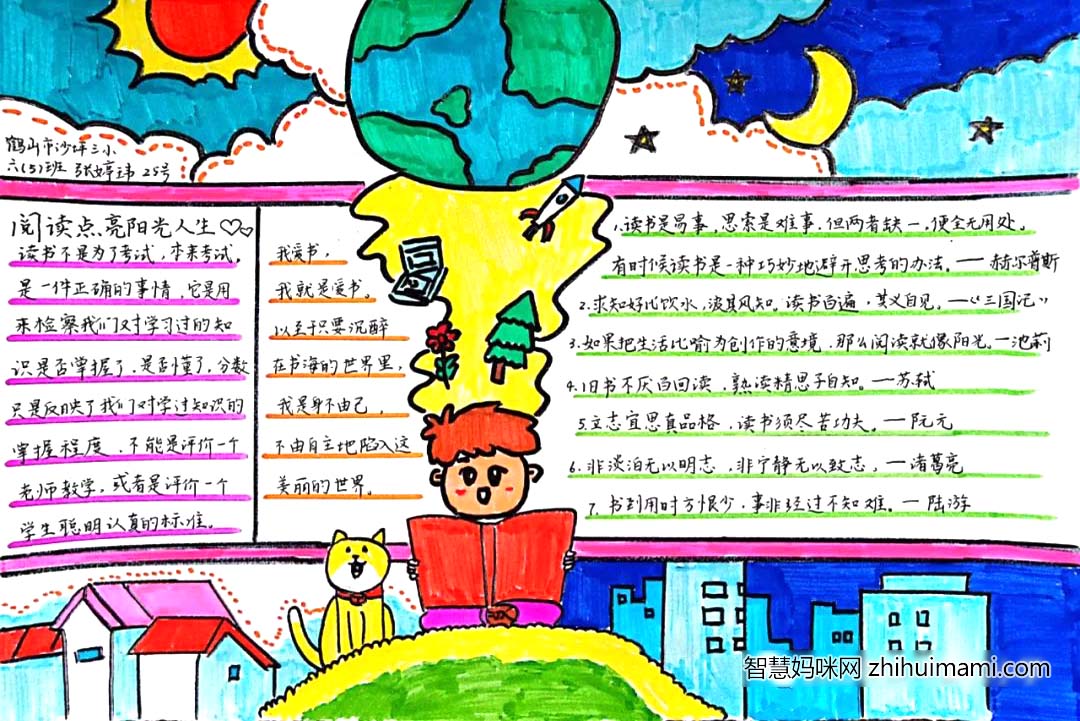 鹤山市沙坪三小
六(5)班 张婷玮 25号
阅读点亮阳光人生
读书不是为了考试，本来考试。
是一件正确的事情，它是用
来检察我们对学习过的知
识是否掌握了，是否懂了，分数
只是反映了我们对学过知识的
掌握程度，不能是评价一个
老师教学，或者是评价一个
学生聪明认真的标准。
我爱书，
我就是爱书。
以至于只要沉醉
在书海的世界里，
我是身不由己，
不由自主地陷入这
美丽的世界。
1.读书是易事，思索是难事，但两者缺一，便全无用处。
有时候读书是一种巧妙地避开思考的办法。——赫尔普斯
2.求知好比饮水，淡其风知。读书百遍，其义自见。——《三国记》
3.如果把生活比喻为创作的意境，那么阅读就像阳光。——池莉
4.旧书不厌百回读，熟读精思子自知。——苏轼
5.立志宜思真品格，读书须尽苦功夫。——阮元
6.非淡泊无以明志，非宁静无以致志，——诸葛亮
7.书到用时方恨少，事非经过不知难。——陆游
智慧妈咪网 zhihuimami.com